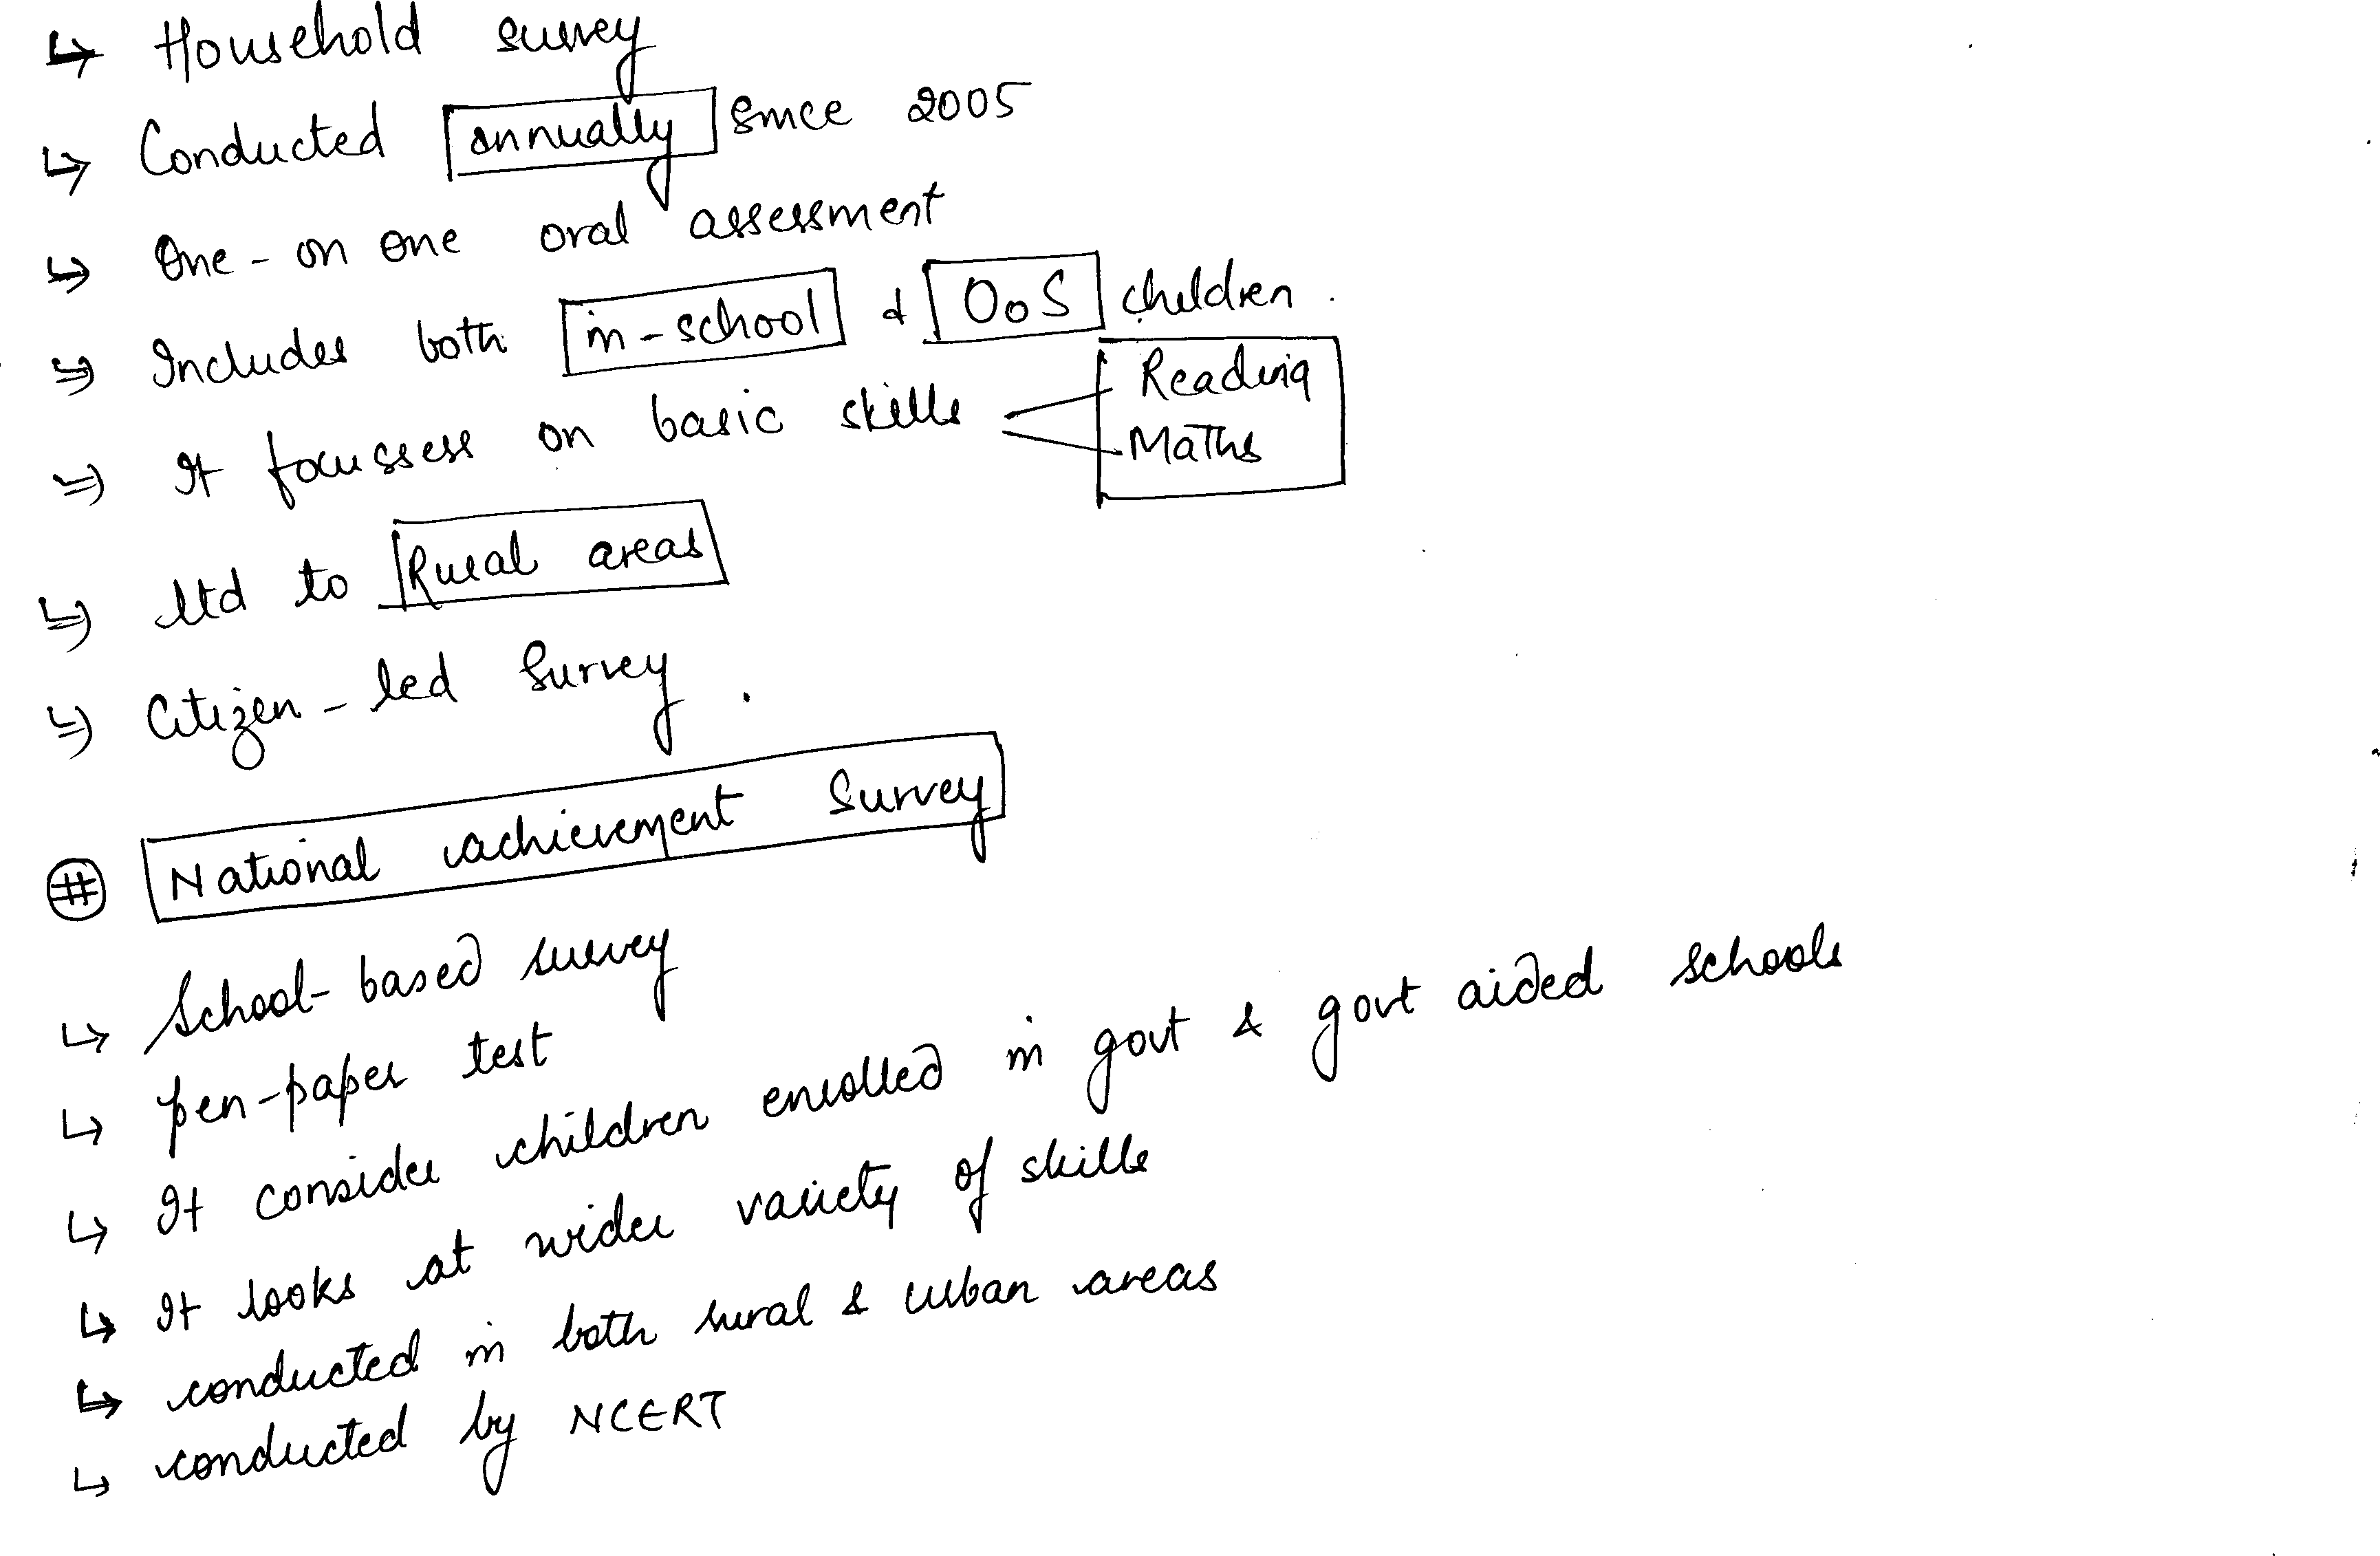 ↳ Household survey
↳ Conducted annually since 2005
↳ One-on one oral assessment
↳ Includes both in-school & OoS children.
↳ It focussess on basic skills Reading
Maths
↳ ltd to Rural areas
↳ Citizen-led Survey.
# National achievement Survey
↳ School-based survey
↳ pen-paper test
↳ It consider children enrolled in govt & govt aided schools
↳ It looks at wider variety of skills
↳ conducted in both rural & urban areas
↳ conducted by NCERT